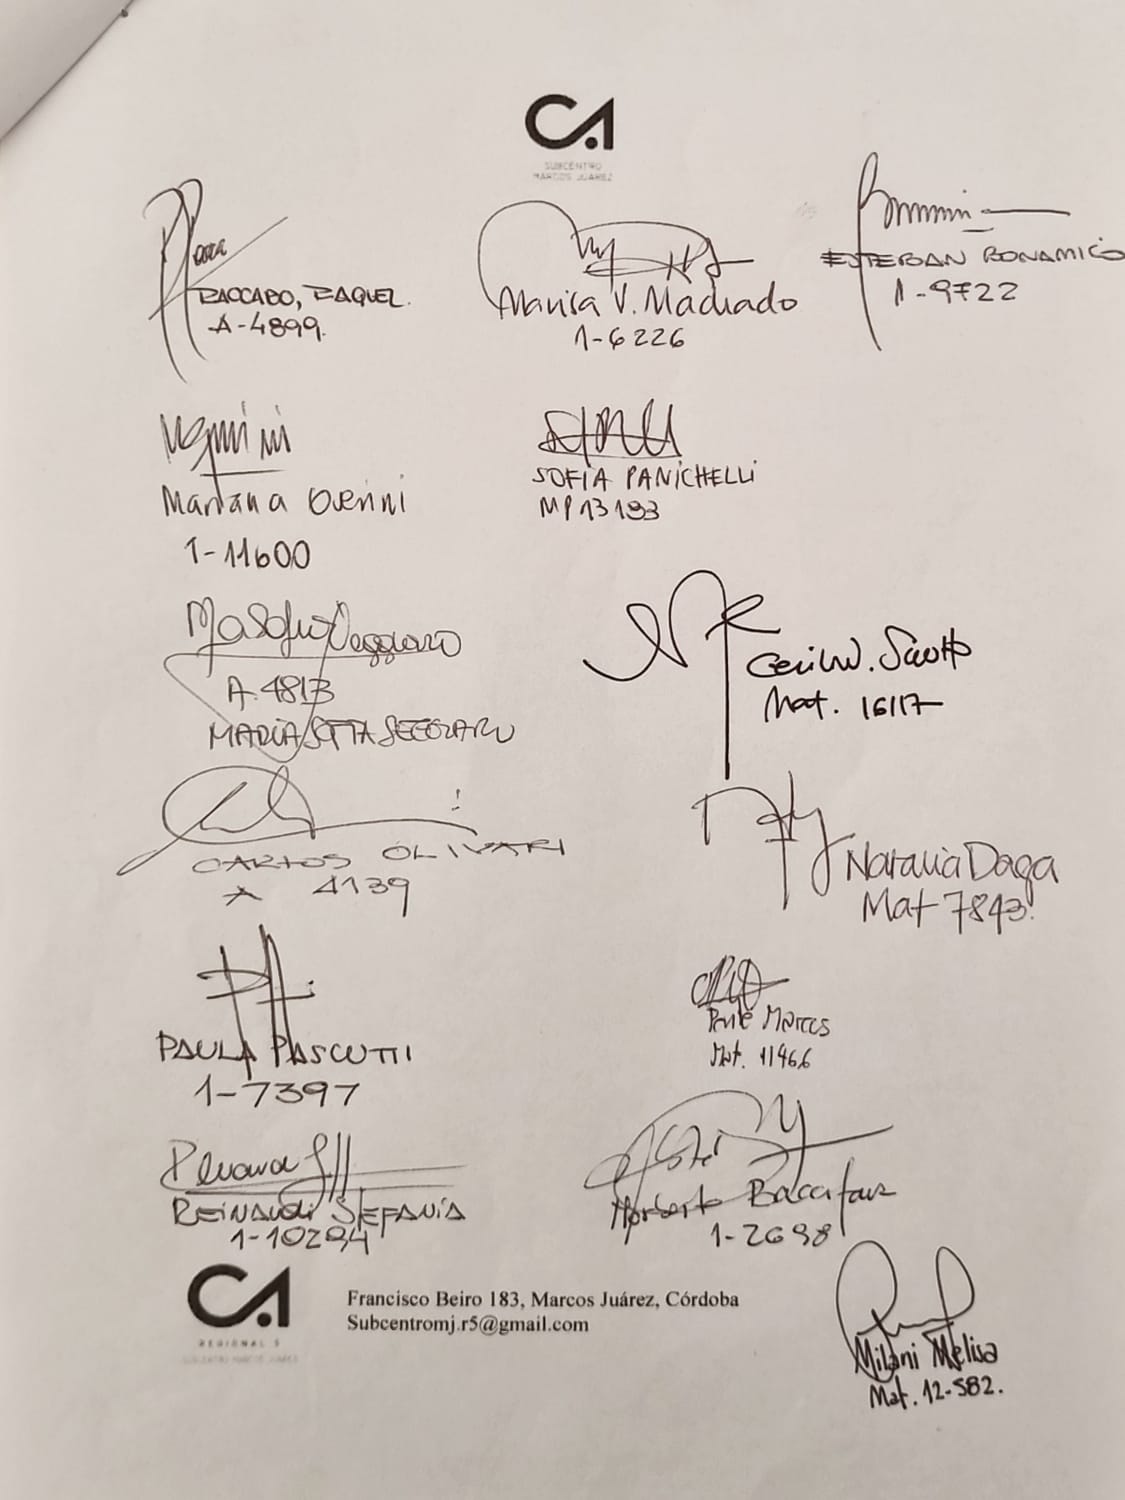 CA
SUBCENTRO
MARCOS JUAREZ
RACCABO, RAQUEL.
A-4899.
Marisa V. Machado
1-6226
ESTEBAN BONAMICO
1-9722
Mariana
1-11600
SOFIA PANICHELLI
MP 13193
A. 4813
MARIA
Mat. 16117
CARLOS OLIVARI
A 4139
Natalia Daga
Mat 7843.
PAULA PASCUTTI
1-7397
Ponte Marcos
Mat. 11466
REINAUDI STEFANIA
1-10294
Norberto
1-2698
CA
REGIONAL 5
SUBCENTRO MARCOS JUAREZ
Francisco Beiro 183, Marcos Juárez, Córdoba
Subcentromj.r5@gmail.com
Milani Melisa
Mat. 12-582.